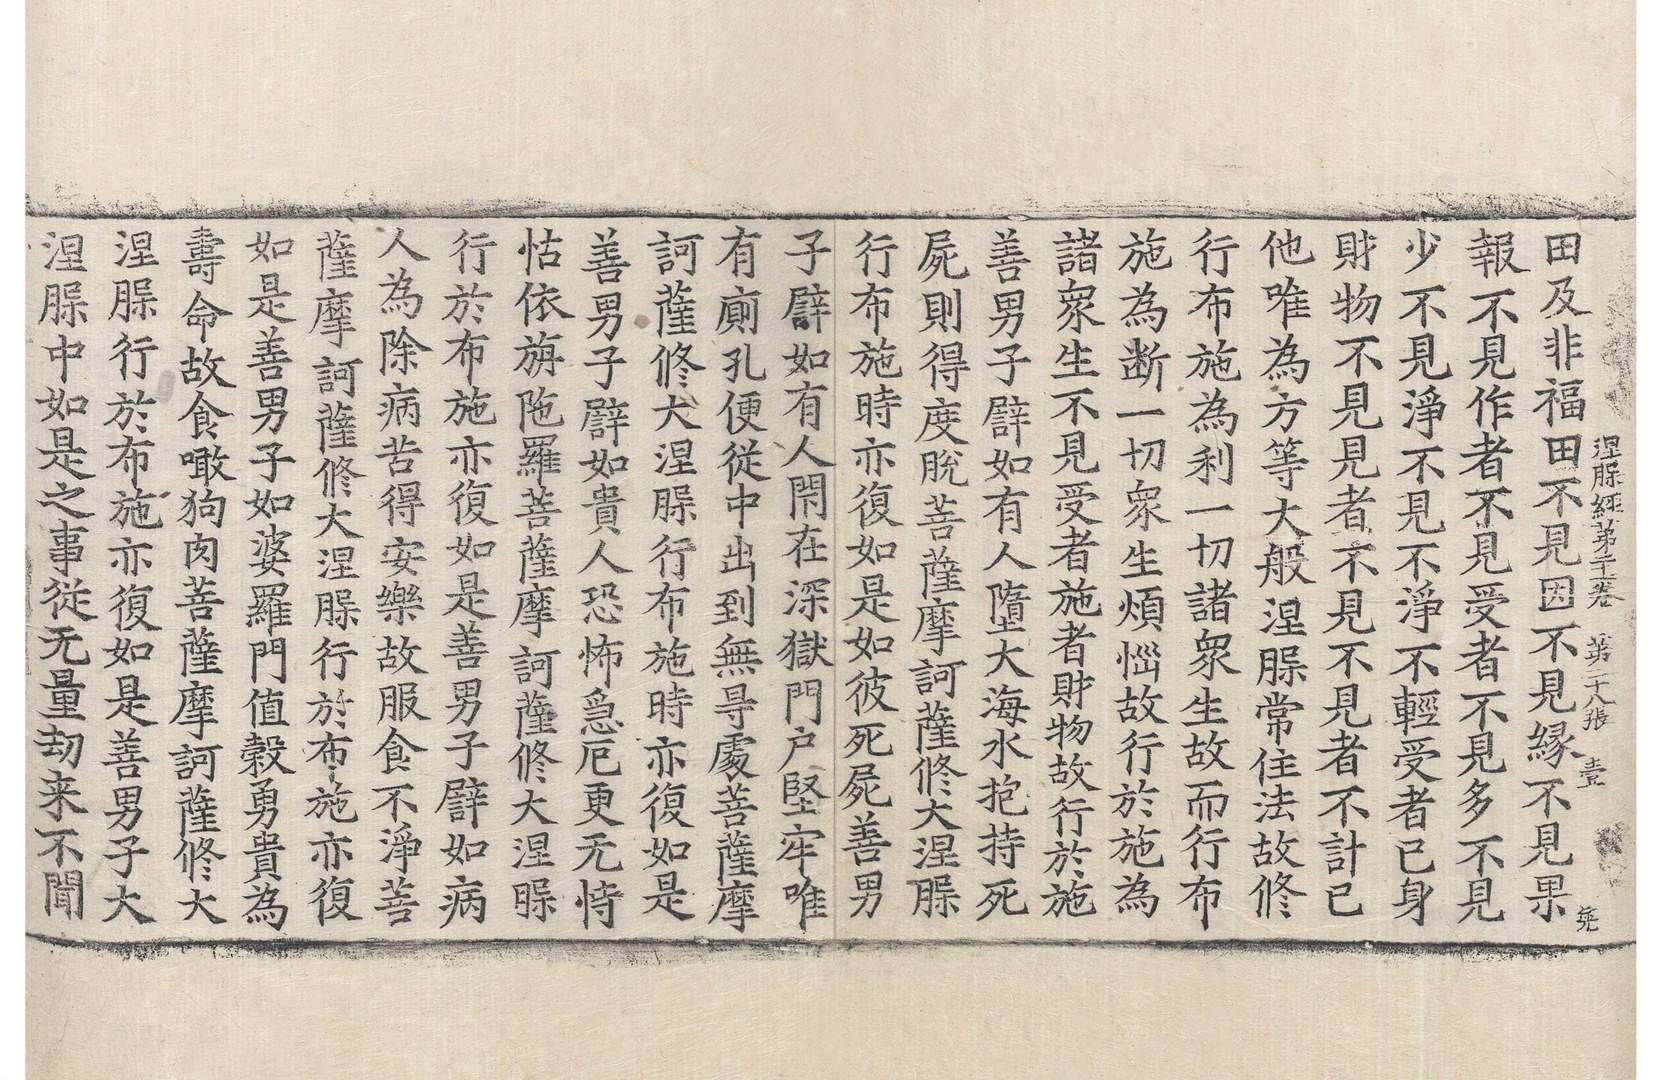 涅槃經第二十二卷 第二十八張 壹
田及非福田不見因不見緣不見果
報不見作者不見受者不見多不見
少不見淨不見不淨不輕受者己身
財物不見見者不見不見者不計己
他唯為方等大般涅槃常住法故修
行布施為利一切諸衆生故而行布
施為断一切衆生煩惱故行於施為
諸衆生不見受者施者財物故行於施
善男子譬如有人墮大海水抱持死
屍則得度脫菩薩摩訶薩修大涅槃
行布施時亦復如是如彼死屍善男
子譬如有人閇在深獄門户堅牢唯
有廁孔便從中出到無㝵處菩薩摩
訶薩修大涅槃行布施時亦復如是
善男子譬如貴人恐怖急厄更无恃
怙依旃陁羅菩薩摩訶薩修大涅槃
行於布施亦復如是善男子譬如病
人為除病苦得安樂故服食不淨菩
薩摩訶薩修大涅槃行於布施亦復
如是善男子如婆羅門值穀勇貴為
壽命故食噉狗肉菩薩摩訶薩修大
涅槃行於布施亦復如是善男子大
涅槃中如是之事從无量劫来不聞